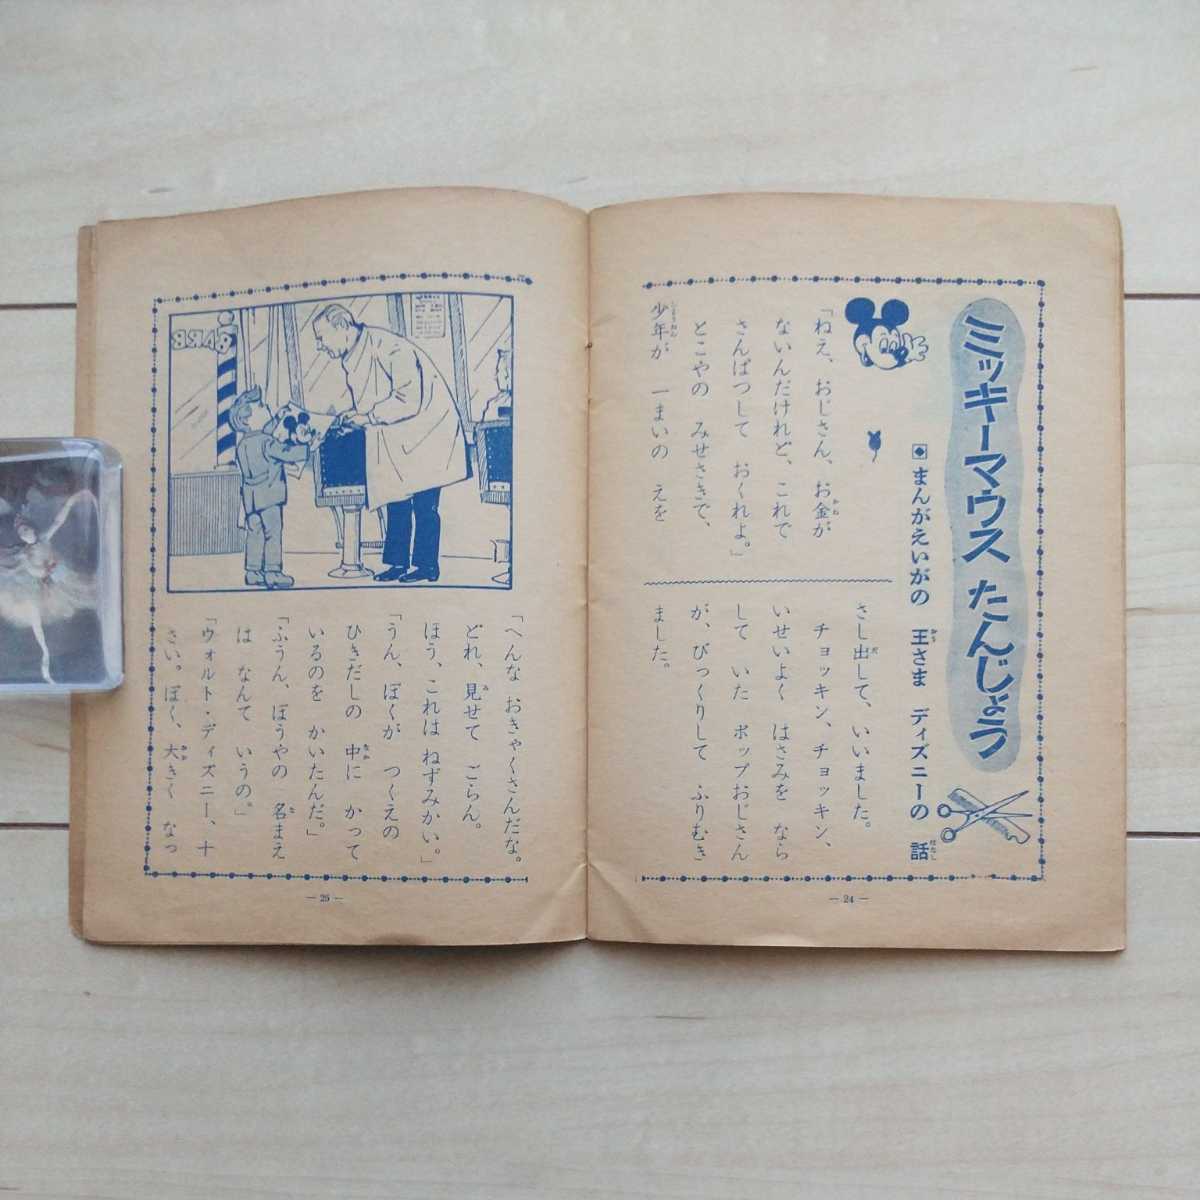 ミッキーマウス たんじょう
まんがえいがの 王さま ディズニーの 話
「ねえ、おじさん、お金が
ないんだけれど、これで
さんぱつして おくれよ。」
とこやの みせさきで、
少年が 一まいの えを
さし出して、いいました。
チョッキン、チョッキン、
いせいよく はさみを なら
して いた ポップおじさん
が、びっくりして ふりむき
ました。
— 24 —
BARB
「へんな おきゃくさんだな。
どれ、見せて ごらん。
ほう、これは ねずみかい。」
「うん、ぼくが つくえの
ひきだしの 中に かって
いるのを かいたんだ。」
「ふうん、ぼうやの 名まえ
は なんて いうの。」
「ウォルト・ディズニー、十
さい。ぼく、大きく なっ
— 25 —